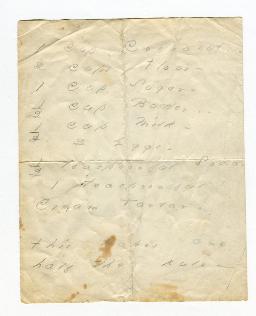 1 Cup Cocoanut...
2 Cups Flour
1 Cup Sugar
1/2 Cup Butter..
1/2 Cup Milk.
2 Eggs.
1/2 Teaspoonful Soda
1 Teaspoonful
Cream Tartar.
this makes one
half the rule